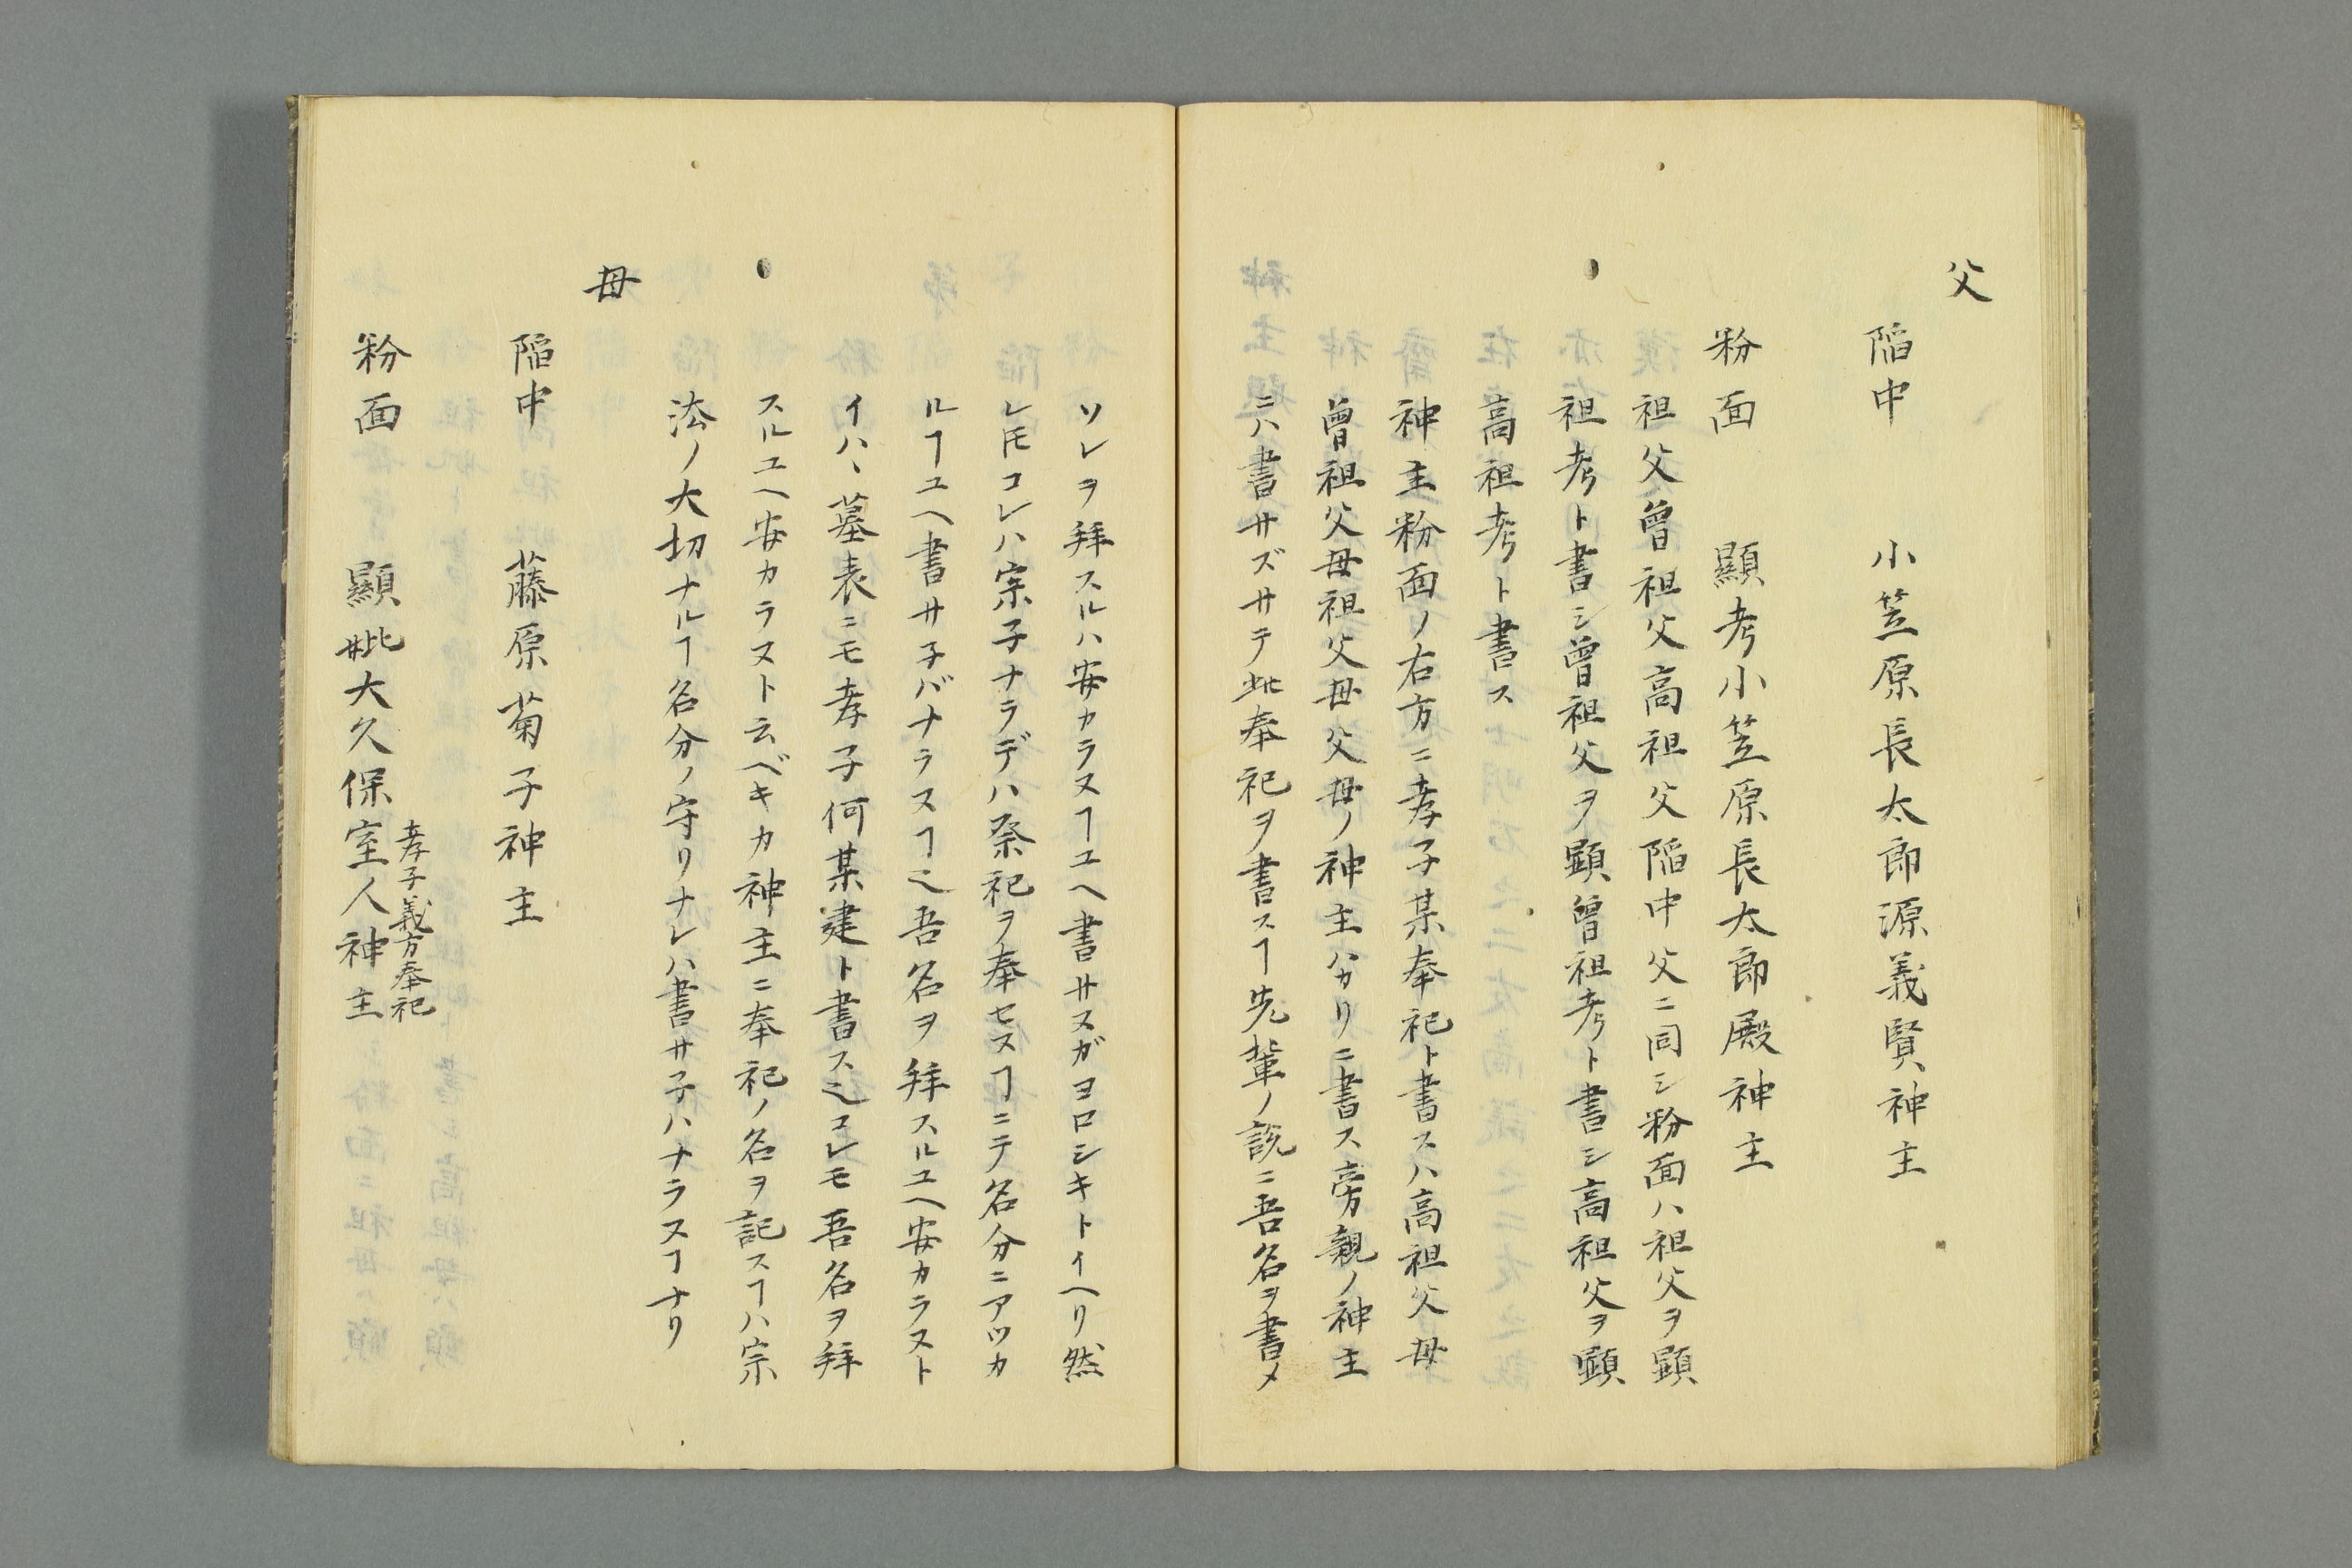 父
陷中　小笠原長太郎源義賢神主
粉面　顯考小笠原長太郎殿神主
祖父曽祖父高祖父陷中父ニ同シ粉面ハ祖父ヲ顕
祖考ト書シ曽祖父ヲ顕曽祖考ト書シ高祖父ヲ顕
高祖考ト書ス
神主粉面ノ右方ニ孝子某奉祀ト書スハ高祖父母
曽祖父母祖父母父母ノ神主ハカリニ書ス旁親ノ神主
ニハ書サズサテ此奉祀ヲ書スヿ先輩ノ説ニ吾名ヲ書メ
ソレヲ拜スルハ安カラヌヿユヘ書サヌガヨロシキトイヘリ然
レ𪜈コレハ宗子ナラデハ祭祀ヲ奉セスヿニテ名分ニアツカ
ルヿユヘ書サ子バナラヌヿ也吾名ヲ拜スルユヘ安カラヌト
イハヽ墓表ニモ孝子何某建ト書ス也コレモ吾名ヲ拜
スルユヘ安カラヌト云ベキカ神主ニ奉祀ノ名ヲ記スヿハ宗
法ノ大切ナルヿ名分ノ守リナレハ書サ子ハナラヌヿナリ
母
陷中　藤原菊子神主
粉面　顯妣大久保室人神主
孝子義方奉祀